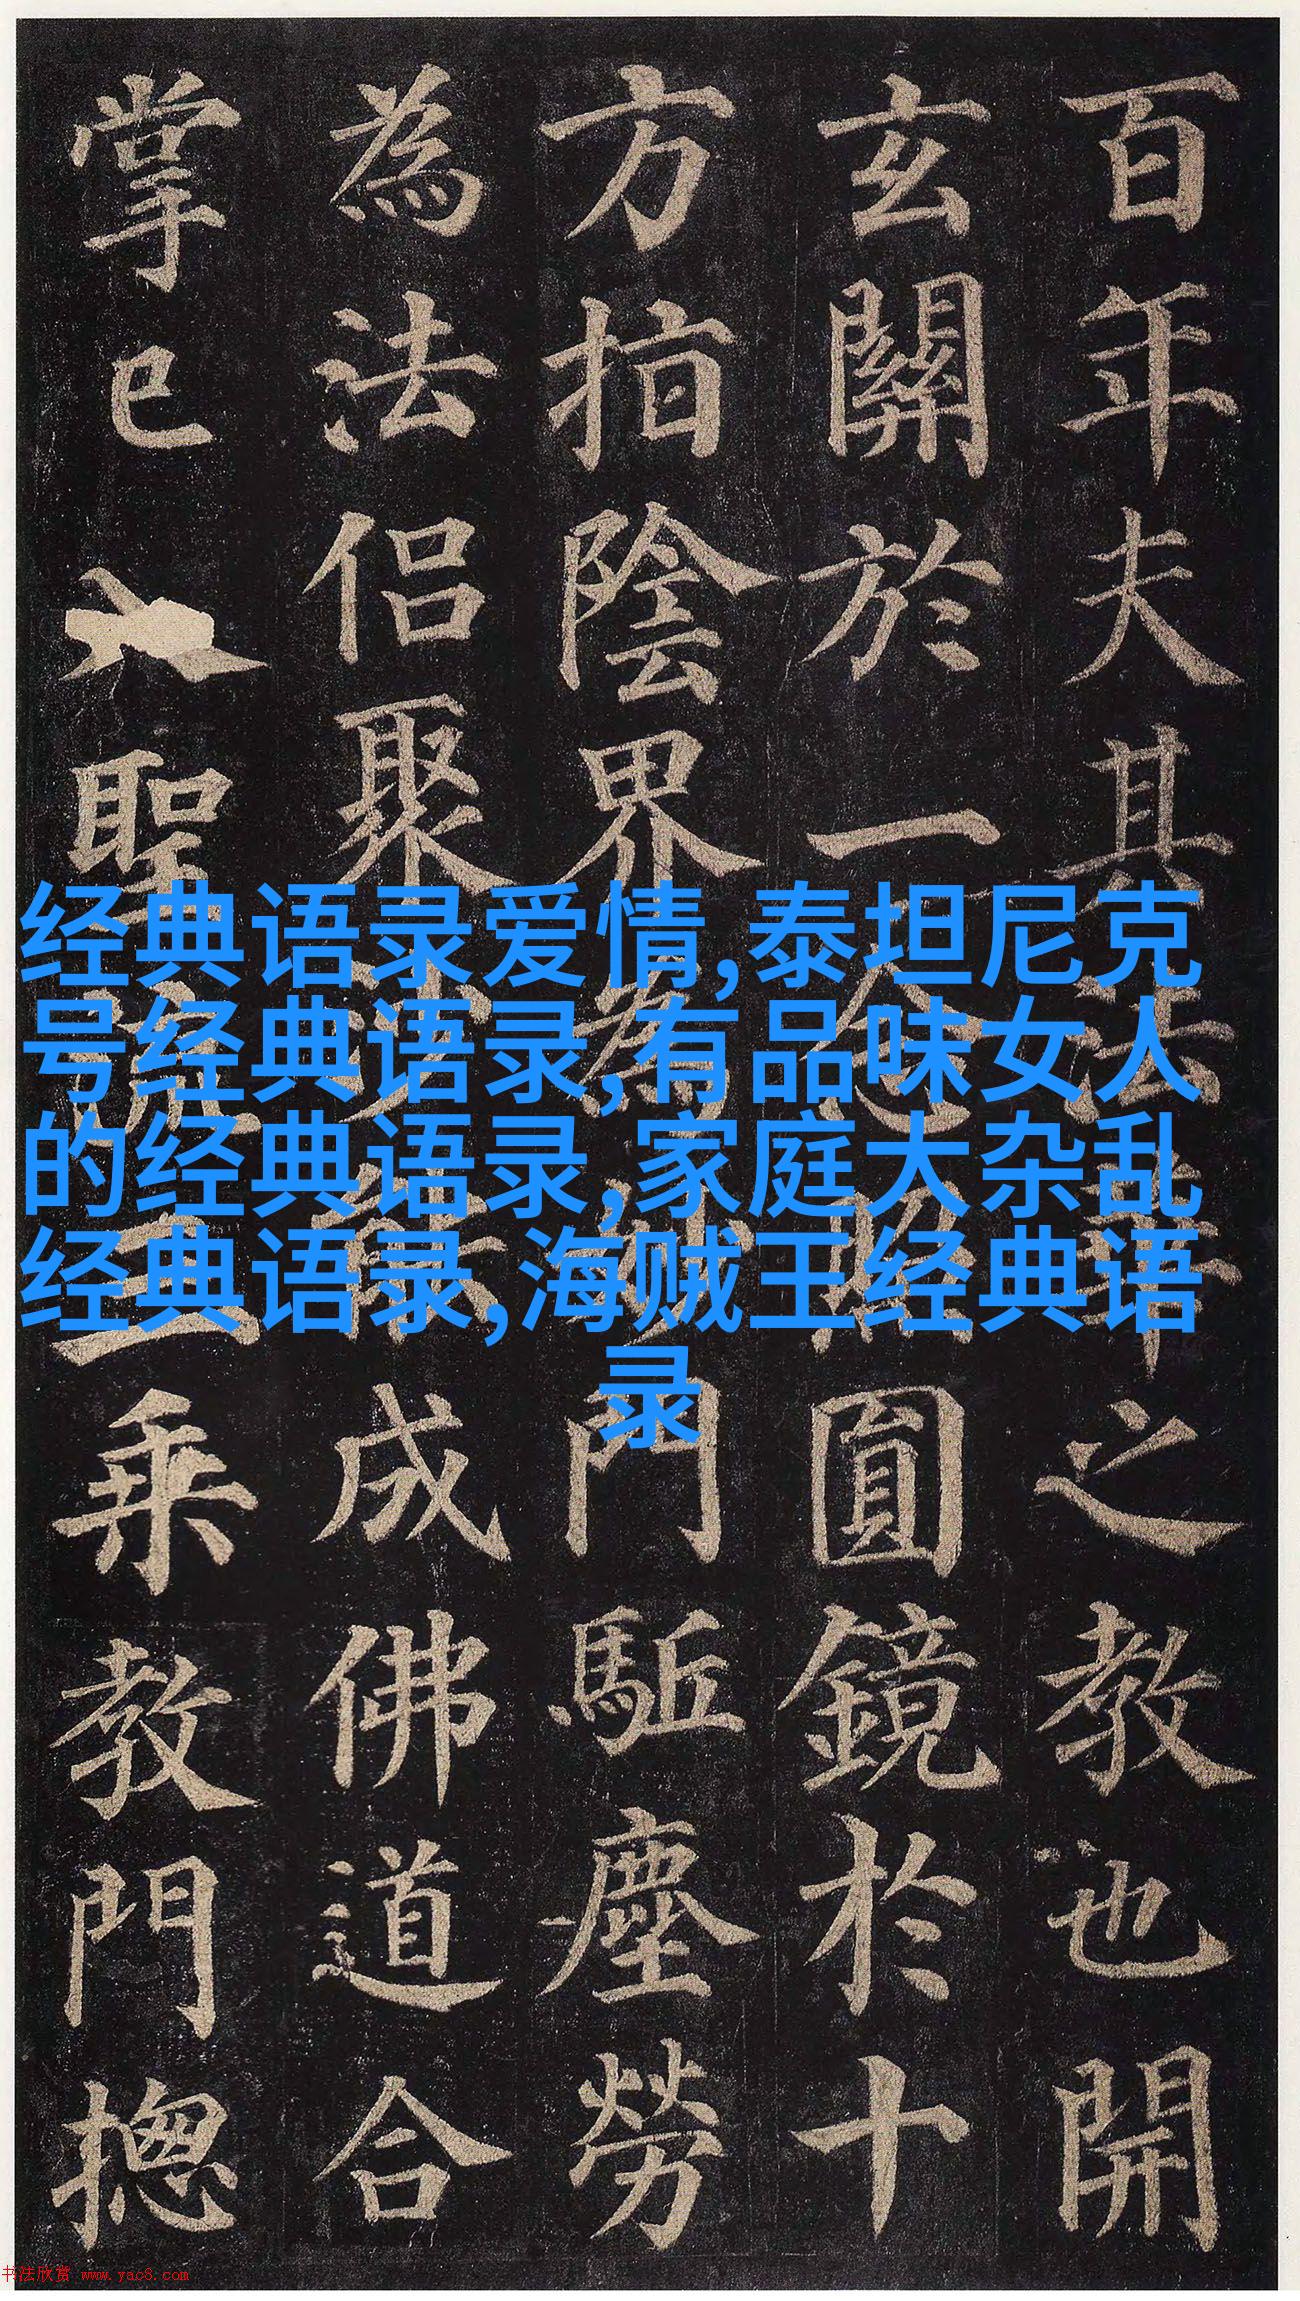 百年夫其法華之教也開
玄關於一念照圓鏡於十
方指陰界為妙門駈塵勞
為法侶聚沙能成佛道合
掌已入聖流三乘教門揔
经典语录爱情,泰坦尼克
号经典语录,有品味女人
的经典语录,家庭大杂乱
经典语录,海贼王经典语
录
书法欣赏 www.yac8.com